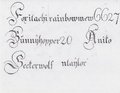 Foritachi rainbowmew6627
Bunnyhopper20 Anito
Seekerwolf ntaylor